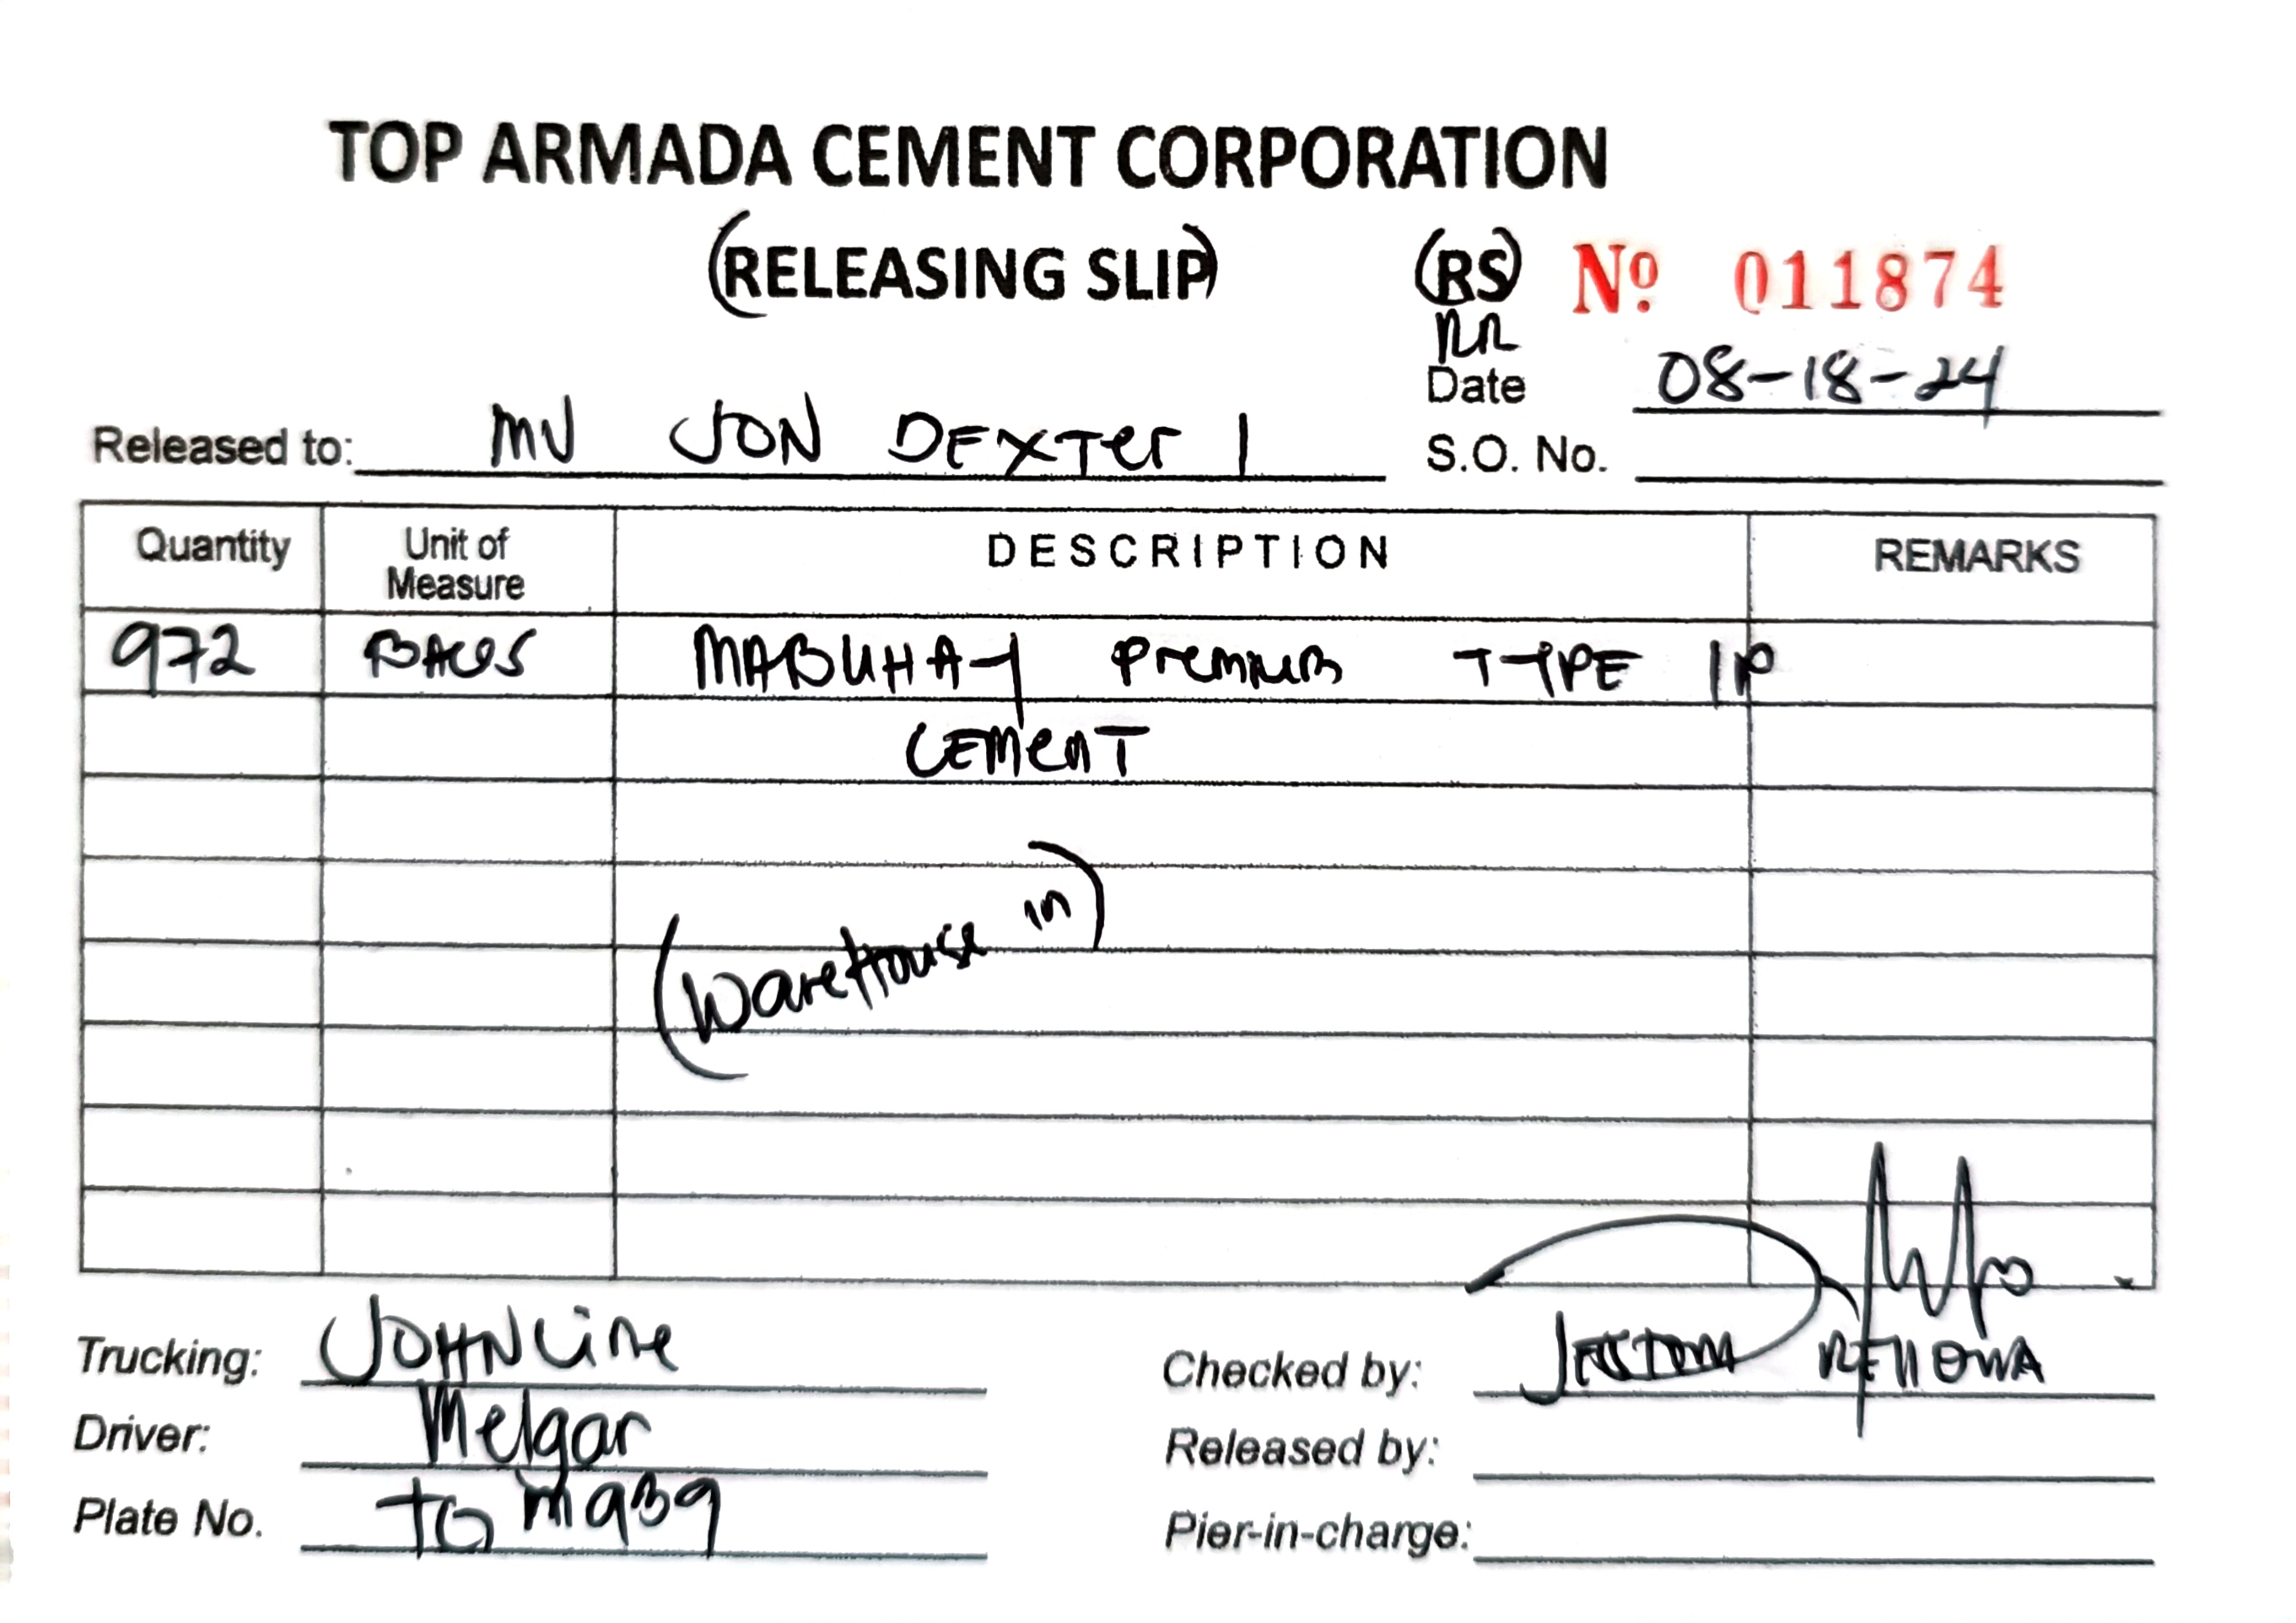 TOP ARMADA CEMENT CORPORATION
(RELEASING SLIP)
(RS) Nº 011874
RR
Date 08-18-24
Released to: MV JON DEXTer 1
S.O. No.
Quantity Unit of Measure DESCRIPTION REMARKS
972 BAGS MABUHAY Premium TYPE 1P
CEMenT
(WareHouse in)
Trucking: JOHNLine
Checked by:
Driver: Melgar
Released by:
Plate No. TG M939
Pier-in-charge: